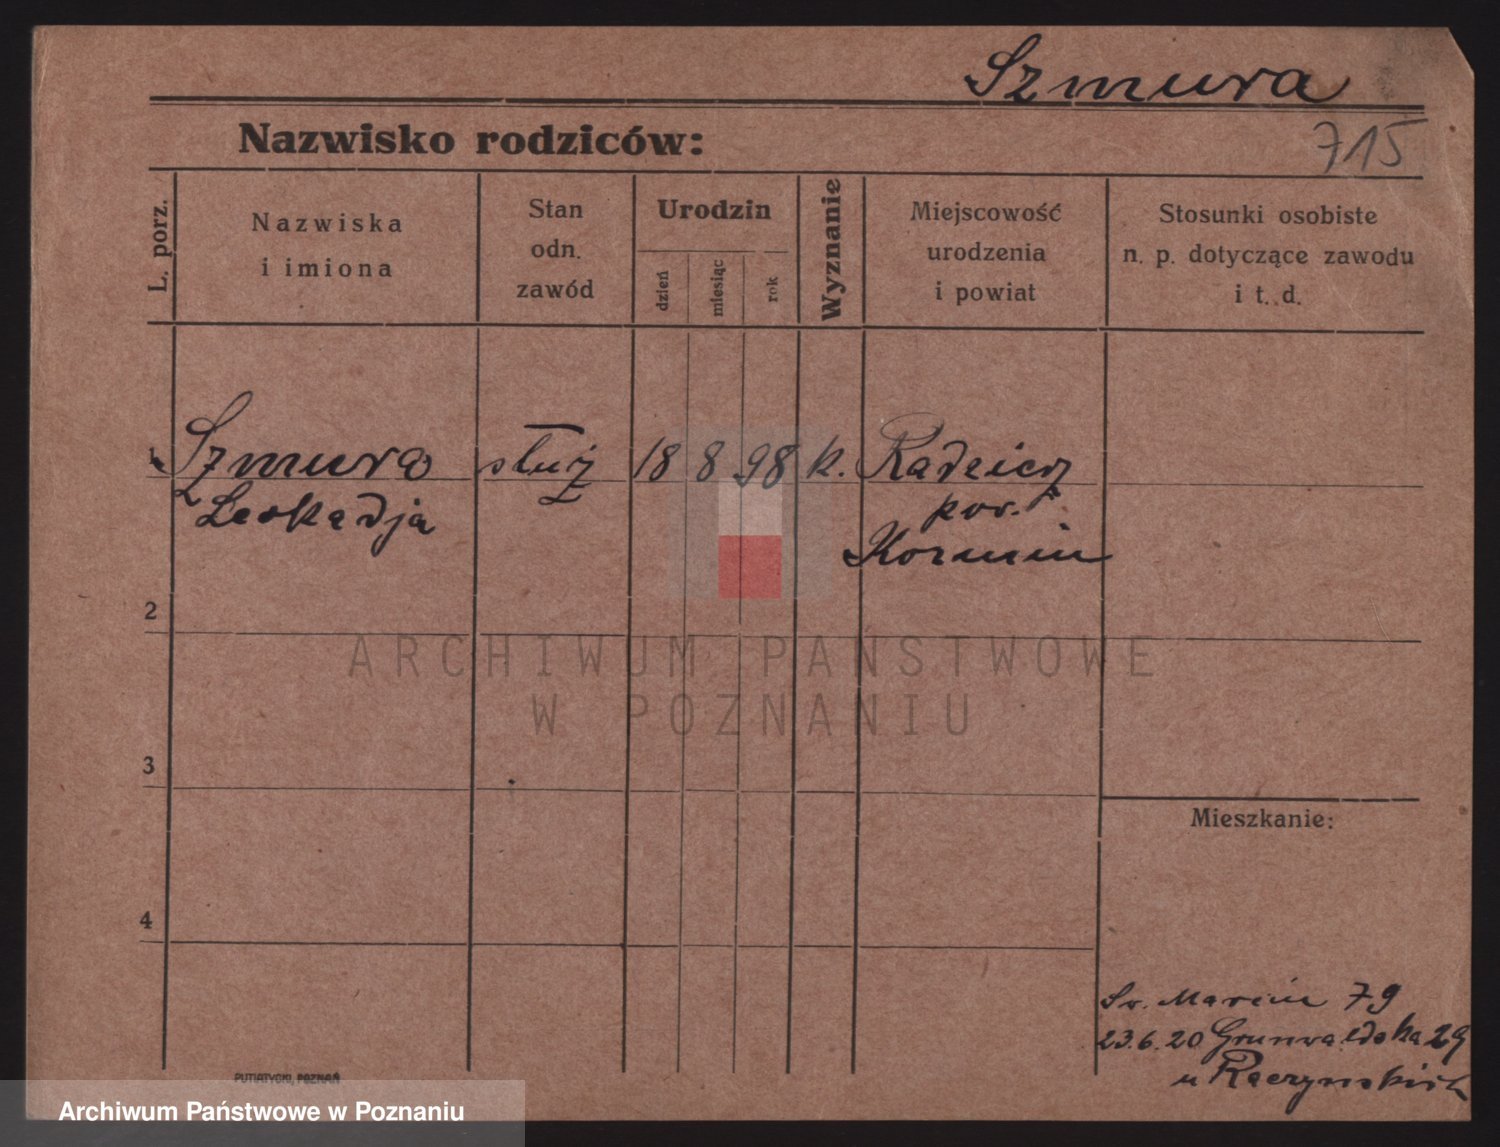 Szmura
Nazwisko rodziców:
715
L. porz.
Nazwiska
i imiona
Stan
odn.
zawód
Urodzin
dzień
miesiąc
rok
Wyznanie
Miejscowość
urodzenia
i powiat
Stosunki osobiste
n. p. dotyczące zawodu
i t. d.
1 Szmura służ 18 8 98 k. Radzicz
Leokadja pow.
Kozmin
2
ARCHIWUM PAŃSTWOWE
W POZNANIU
3
Mieszkanie:
4
Sw. Marcin 79
23.6.20 Grunwaldska 29
u Raczynskich
PUTIATYCKI, POZNAŃ
Archiwum Państwowe w Poznaniu